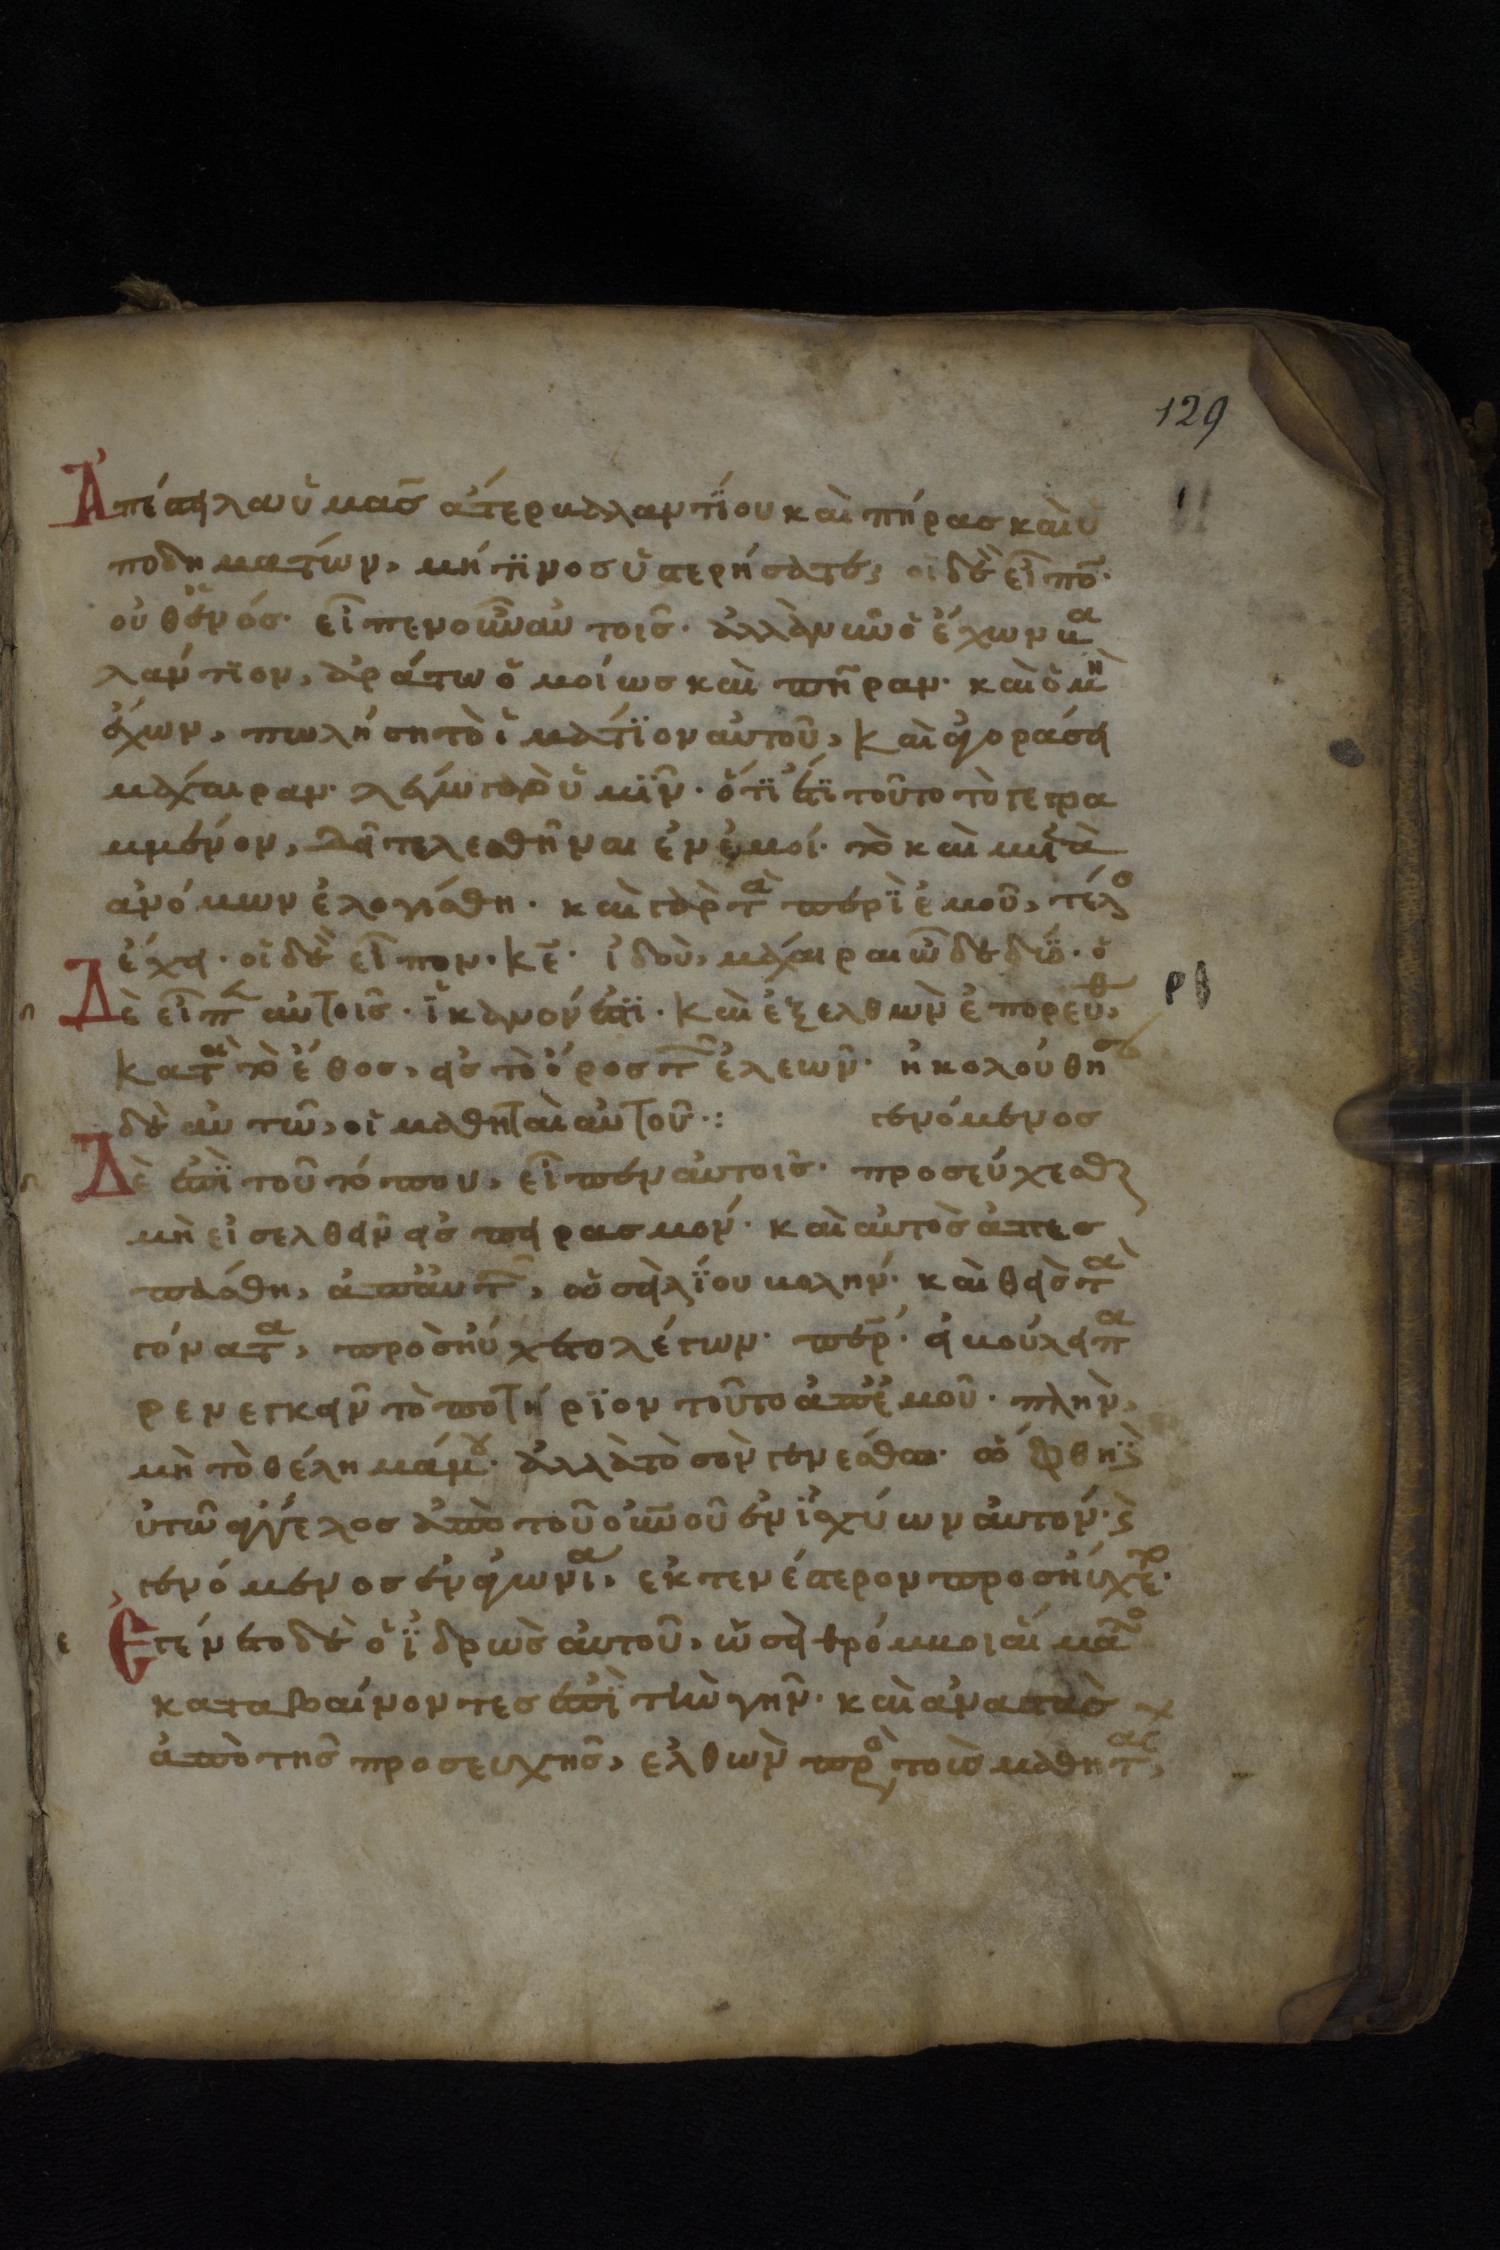 129
Ἀπέστειλα ὑμᾶς ἄτερ βαλαντίου καὶ πήρας καὶ ὑ
ποδημάτων, μή τινος ὑστερήσατε; οἱ δὲ εἶπο̅·
οὐθενός· εἶπεν οὖν αὐτοῖς· ἀλλὰ νῦν ὁ ἔχων βα
λάντιον, ἀράτω ὁμοίως καὶ πῆραν· καὶ ὁ μὴ
ἔχων, πωλήσῃ τὸ ἱμάτιον αὐτοῦ, καὶ ἀγοράσει
μάχαιραν· λέγω γὰρ ὑμῖν· ὅτι ἔτι τοῦτο τὸ γεγρα
μμένον, δεῖ τελεσθῆναι ἐν ἐμοί· τὸ καὶ μετὰ
ἀνόμων ἐλογίσθη· καὶ γὰρ τὰ περὶ ἐμοῦ, τέλο
ἔχει· οἱ δὲ εἶπον· κε̅· ἰδοὺ, μάχαιραι ὧδε δύο· ὁ
Δὲ εἶπ αὐτοῖς· ἱκανόν ἐστι· καὶ ἐξελθὼν ἐπορεύθ,
κατὰ τὸ ἔθος, εἰς τὸ ὄρος τῶν ἐλεῶν· ἠκολούθησ
δὲ αὐτῷ, οἱ μαθηταὶ αὐτοῦ·: γενόμενος
Δὲ ἐπὶ τοῦ τόπου, εἶπεν αὐτοῖς· προσεύχεσθε
μὴ εἰσελθεῖν εἰς πειρασμόν· καὶ αὐτὸς ἀπεσ
πάσθη, ἀπ' αὐτῶν, ὡσεὶ λίθου βολήν· καὶ θεὶς τὰ
γόνατα, προσηύχετο λέγων· περ· εἰ βούλει πα
ρενεγκεῖν τὸ ποτήριον τοῦτο ἀπ' ἐμοῦ· πλὴν,
μὴ τὸ θέλημά μου· ἀλλὰ τὸ σὸν γενέσθω· ὤφθη δὲ
αὐτῷ ἄγγελος ἀπὸ τοῦ οὐνοῦ ἐνισχύων αὐτόν· καὶ
γενόμενος ἐν ἀγωνία, ἐκτενέστερον προσηύχετο·
Ἐγένετο δὲ ὁ ἱδρὼς αὐτοῦ, ὡσεὶ θρόμβοι αἵματο
καταβαίνοντες ἐπὶ τὴν γῆν· καὶ ἀναστὰς
ἀπὸ τῆς προσευχῆς, ἐλθὼν πρὸς τοὺς μαθητὰς,